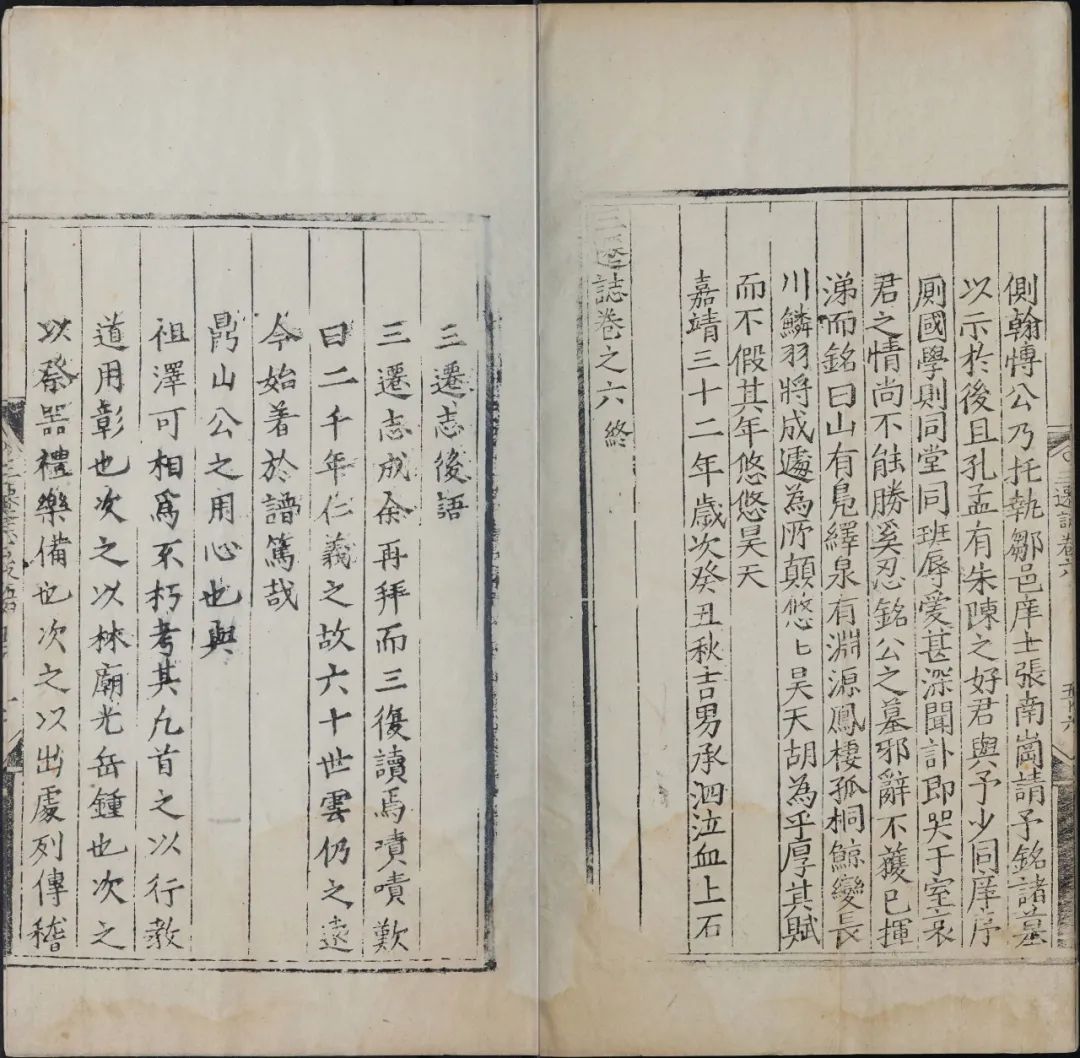 側翰愽公乃托執鄒邑庠士張南崗請予銘諸墓
以示於後且孔孟有朱陳之好君與予少同庠序
廁國學則同堂同班辱愛甚深聞訃即哭于室哀
君之情尚不能勝奚忍銘公之墓邪辭不獲已揮
涕而銘曰山有鳧繹泉有淵源鳳棲孤桐鯨變長
川鱗羽將成遽為所顛悠〻昊天胡為乎厚其賦
而不假其年悠悠昊天
嘉靖三十二年歲次癸丑秋吉男承泗泣血上石
三遷誌卷之六終
三遷誌卷六
五十六
三遷志後語
三遷志成余再拜而三復讀焉嘖嘖歎
曰二千年仁義之故六十世雲仍之遠
今始著於譜篤哉
鳧山公之用心也與
祖澤可相爲不朽考其凢首之以行教
道用彰也次之以林廟光岳鍾也次之
以祭器禮樂備也次之以出處列傳稽
三遷志後語
一